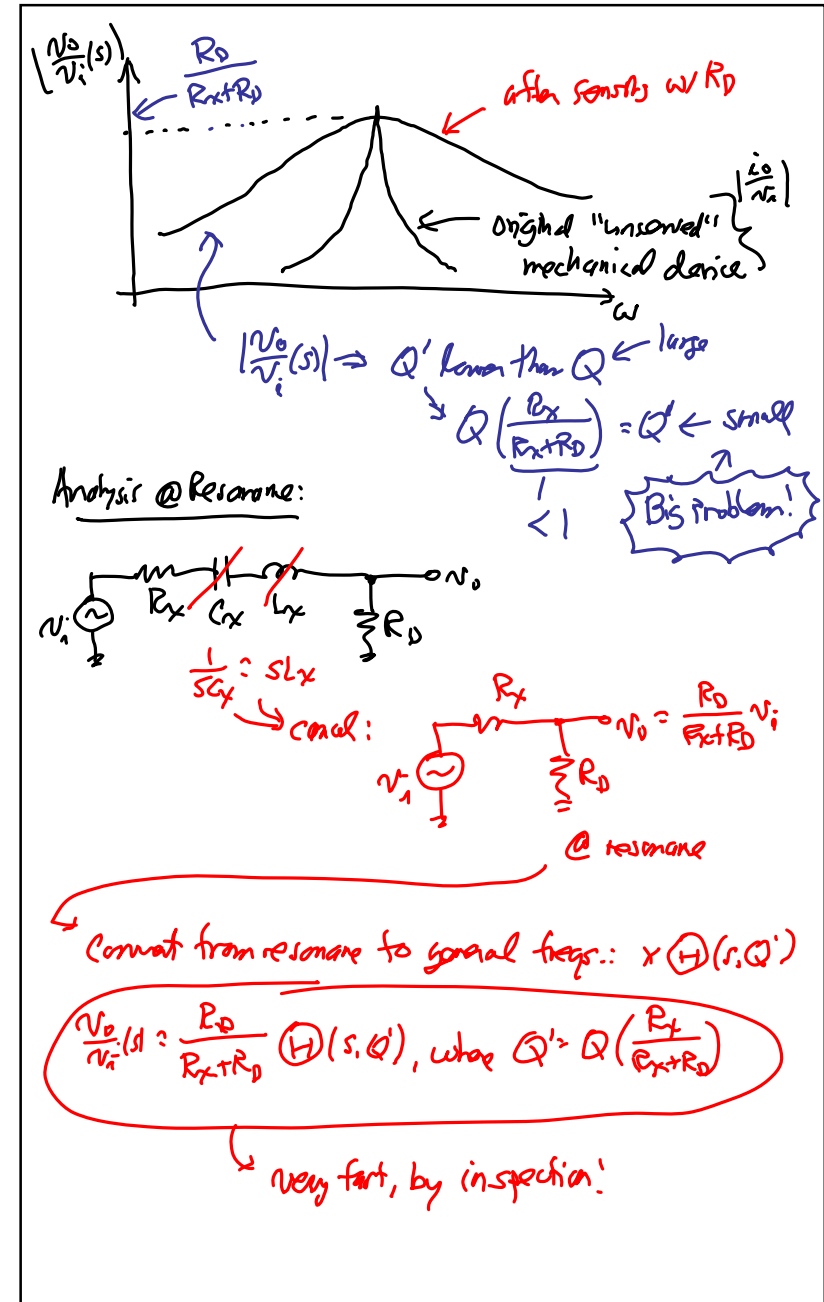 |v₀/vᵢ(s)|
R_D/(Rx+R_D)
after sensing w/ R_D
|i₀/vᵢ|
original "unsensed"
mechanical device
ω
|v₀/vᵢ(s)| ⇒ Q' lower than Q ← large
Q(Rx/(Rx+R_D)) = Q' ← small
<1
Big Problem!
Analysis @ Resonance:
vᵢ Rx Cx Lx v₀
R_D
1/(sCx) = sLx
cancel:
Rx
vᵢ R_D v₀ = R_D/(Rx+R_D) vᵢ
@ resonance
Convert from resonance to general freqs.: × Θ(s,Q')
v₀/vᵢ(s) = R_D/(Rx+R_D) Θ(s,Q'), where Q' = Q(Rx/(Rx+R_D))
very fast, by inspection!